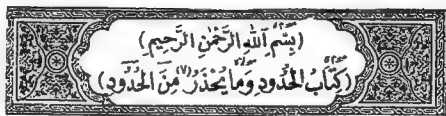 (بِسْمِ اللّٰهِ الرَّحْمٰنِ الرَّحِيمِ)
(كِتَابُ الْحُدُودِ وَمَا يُحْذَرُ (٧) مِنَ الْحُدُودِ)